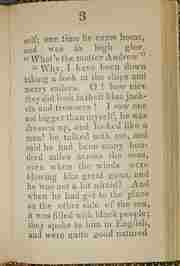 3
self; one time he came home,
and was in high glee,
"What's the matter Andrew"
"Why, I have been down
taking a look at the ships and
merry sailors. O! how nice
they did look in their blue jack-
ets and trowsers! I saw one
not bigger than myself, he was
dressed up, and looked like a
man! he talked with me, and
said he had been many hun-
dred miles across the seas,
even when the winds were
blowing like great guns, and
he was not a bit afraid! And
when he had got to the place
on the other side of the sea,
it was filled with black people;
they spoke to him in English,
and were quite good natured